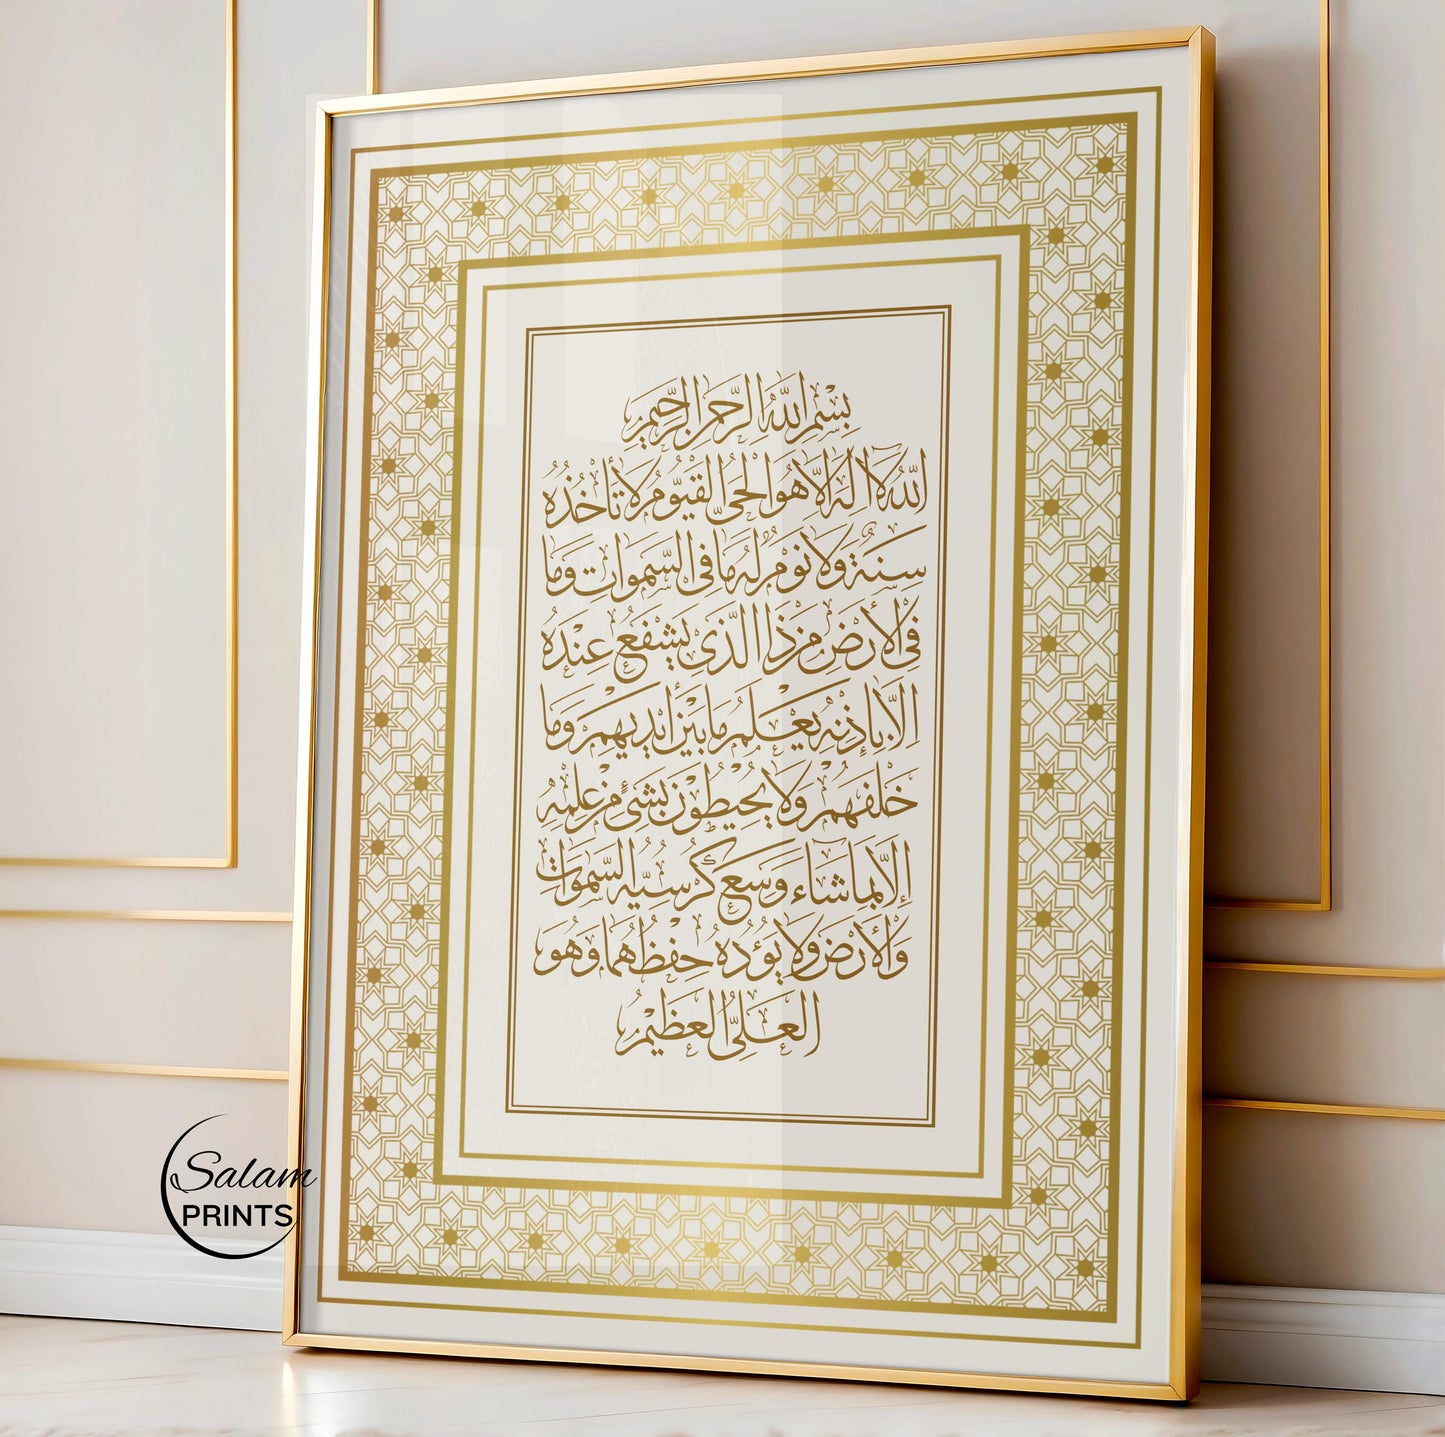 بِسْمِ اللّٰهِ الرَّحْمٰنِ الرَّحِيمِ
اللّٰهُ لَا اِلٰهَ اِلَّا هُوَ الْحَىُّ الْقَيُّومُ لَا تَأْخُذُهُ
سِنَةٌ وَلَا نَوْمٌ لَهُ مَا فِى السَّمٰوَاتِ وَمَا
فِى الْأَرْضِ مَنْ ذَا الَّذِى يَشْفَعُ عِنْدَهُ
اِلَّا بِاِذْنِهِ يَعْلَمُ مَا بَيْنَ اَيْدِيهِمْ وَمَا
خَلْفَهُمْ وَلَا يُحِيطُونَ بِشَىْءٍ مِنْ عِلْمِهِ
اِلَّا بِمَا شَاءَ وَسِعَ كُرْسِيُّهُ السَّمٰوَاتِ
وَالْأَرْضَ وَلَا يَؤُدُهُ حِفْظُهُمَا وَهُوَ
الْعَلِىُّ الْعَظِيمُ
Salam
PRINTS